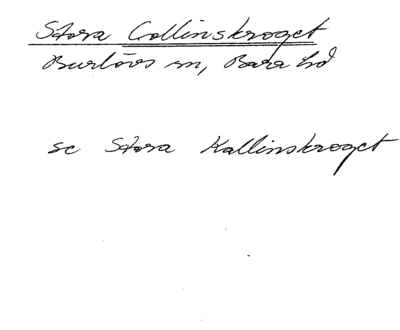 Stora Collinskroget
Burlövs sn, Bara hd
se Stora Kallinskroget